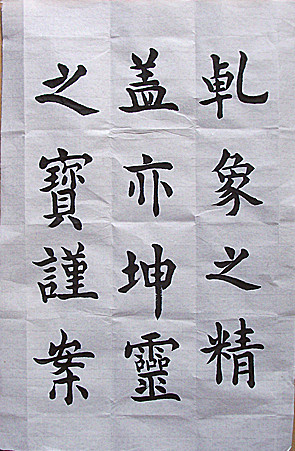 乹象之精
盖亦坤靈
之寳謹案